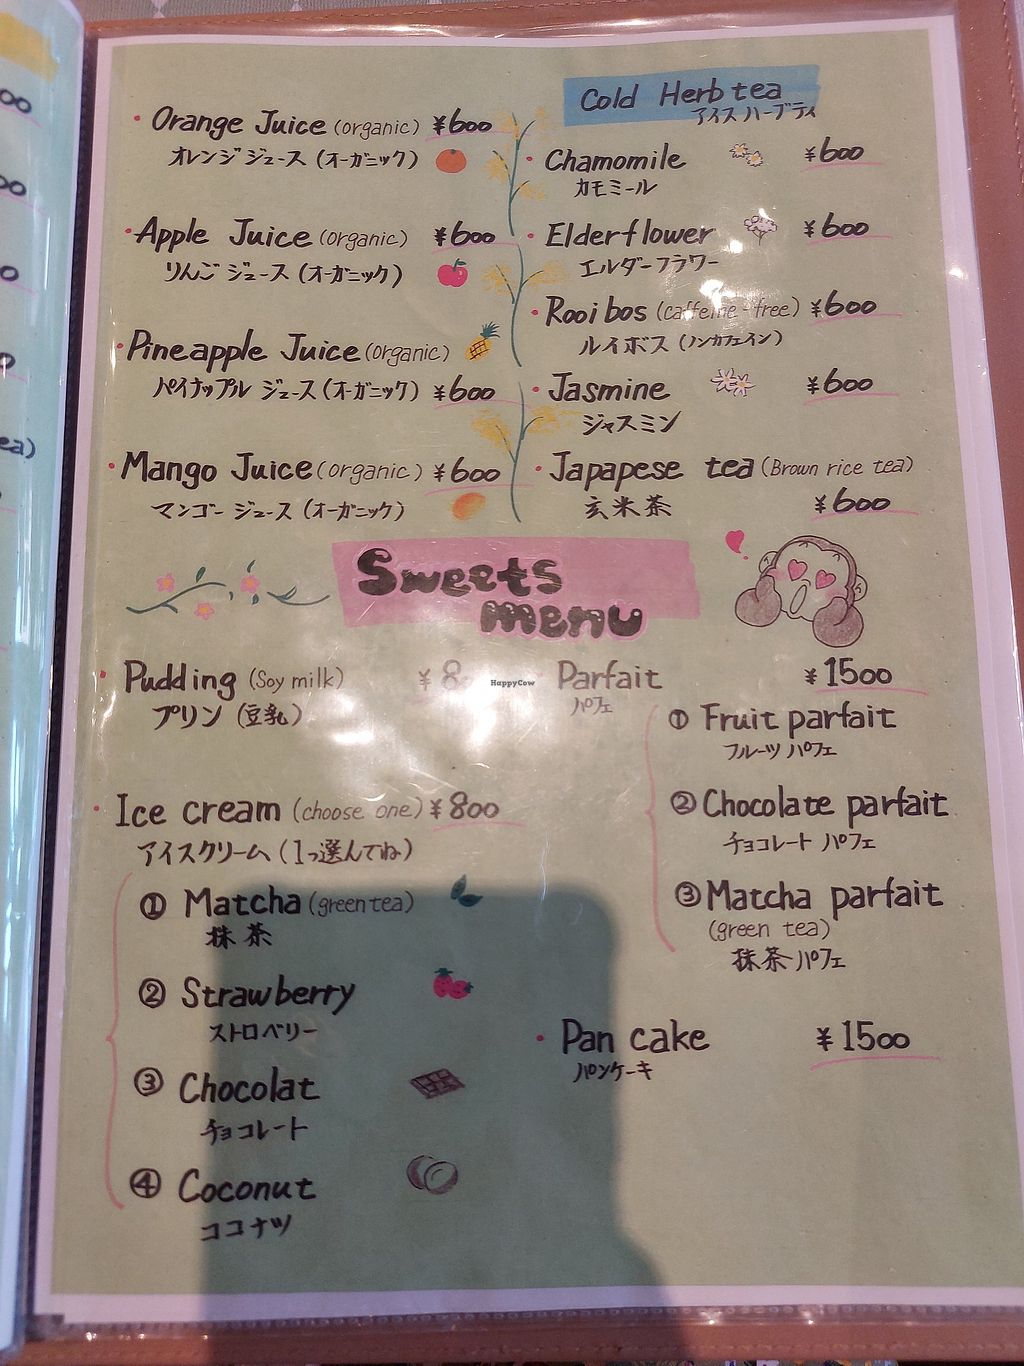 Orange Juice (organic) ¥600
オレンジジュース (オーガニック)
Apple Juice (organic) ¥600
りんごジュース (オーガニック)
Pineapple Juice (organic)
パイナップル ジュース (オーガニック) ¥600
Mango Juice (organic) ¥600
マンゴー ジュース (オーガニック)
Cold Herb tea
アイスハーブティ
Chamomile ¥600
カモミール
Elderflower ¥600
エルダーフラワー
Rooibos (caffeine-free) ¥600
ルイボス (ノンカフェイン)
Jasmine ¥600
ジャスミン
Japapese tea (Brown rice tea)
玄米茶 ¥600
Sweets
menu
Pudding (Soy milk) ¥8
プリン (豆乳)
Ice cream (choose one) ¥800
アイスクリーム (1つ選んでね)
① Matcha (green tea)
抹茶
② Strawberry
ストロベリー
③ Chocolat
チョコレート
④ Coconut
ココナツ
Parfait ¥1500
パフェ
① Fruit parfait
フルーツ パフェ
② Chocolate parfait
チョコレート パフェ
③ Matcha parfait
(green tea)
抹茶パフェ
Pan cake ¥1500
パンケーキ
HappyCow
00
00
0
ea)